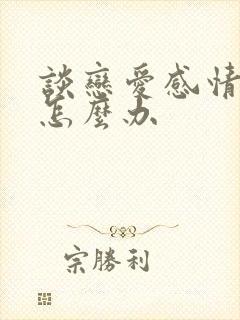 談戀愛感情
怎麼办
宗勝利